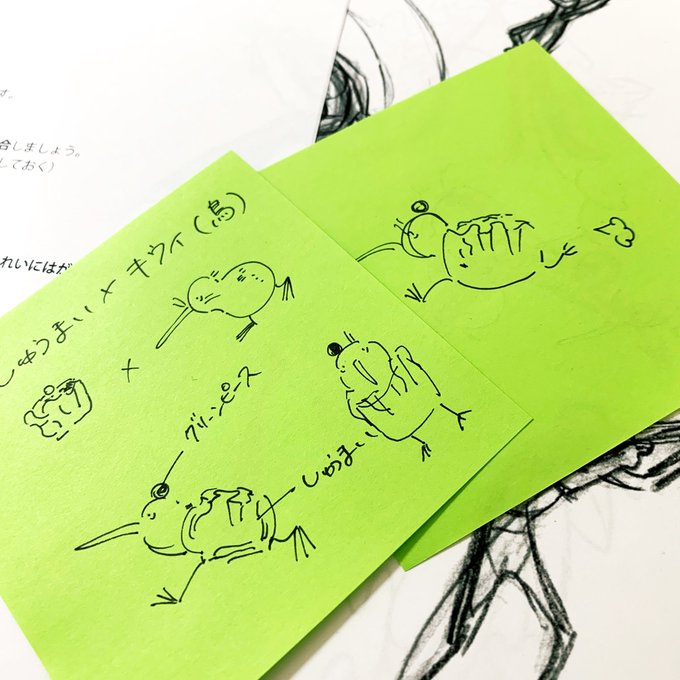 す。
合しましょう。
しておく)
れいにはが
しゅうまい × キウイ(鳥)
×
グリーンピース
しゅうまい